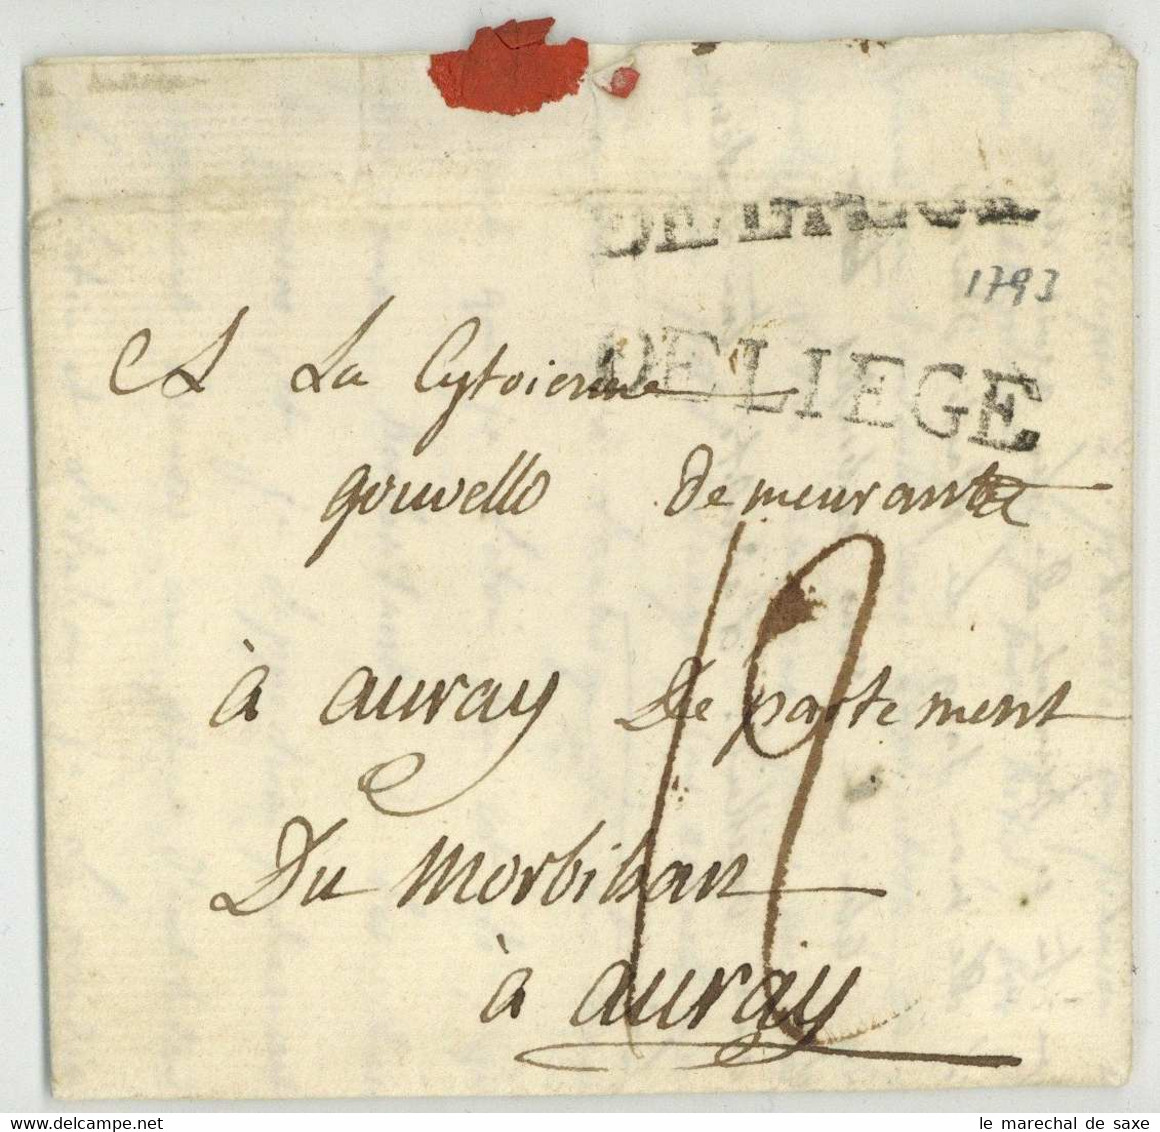 DE LIEGE
1793
DE LIEGE
A La Cytoienne
gouvello Demeurante
à auray Departement
Du Morbihan
à auray
le marechal de saxe